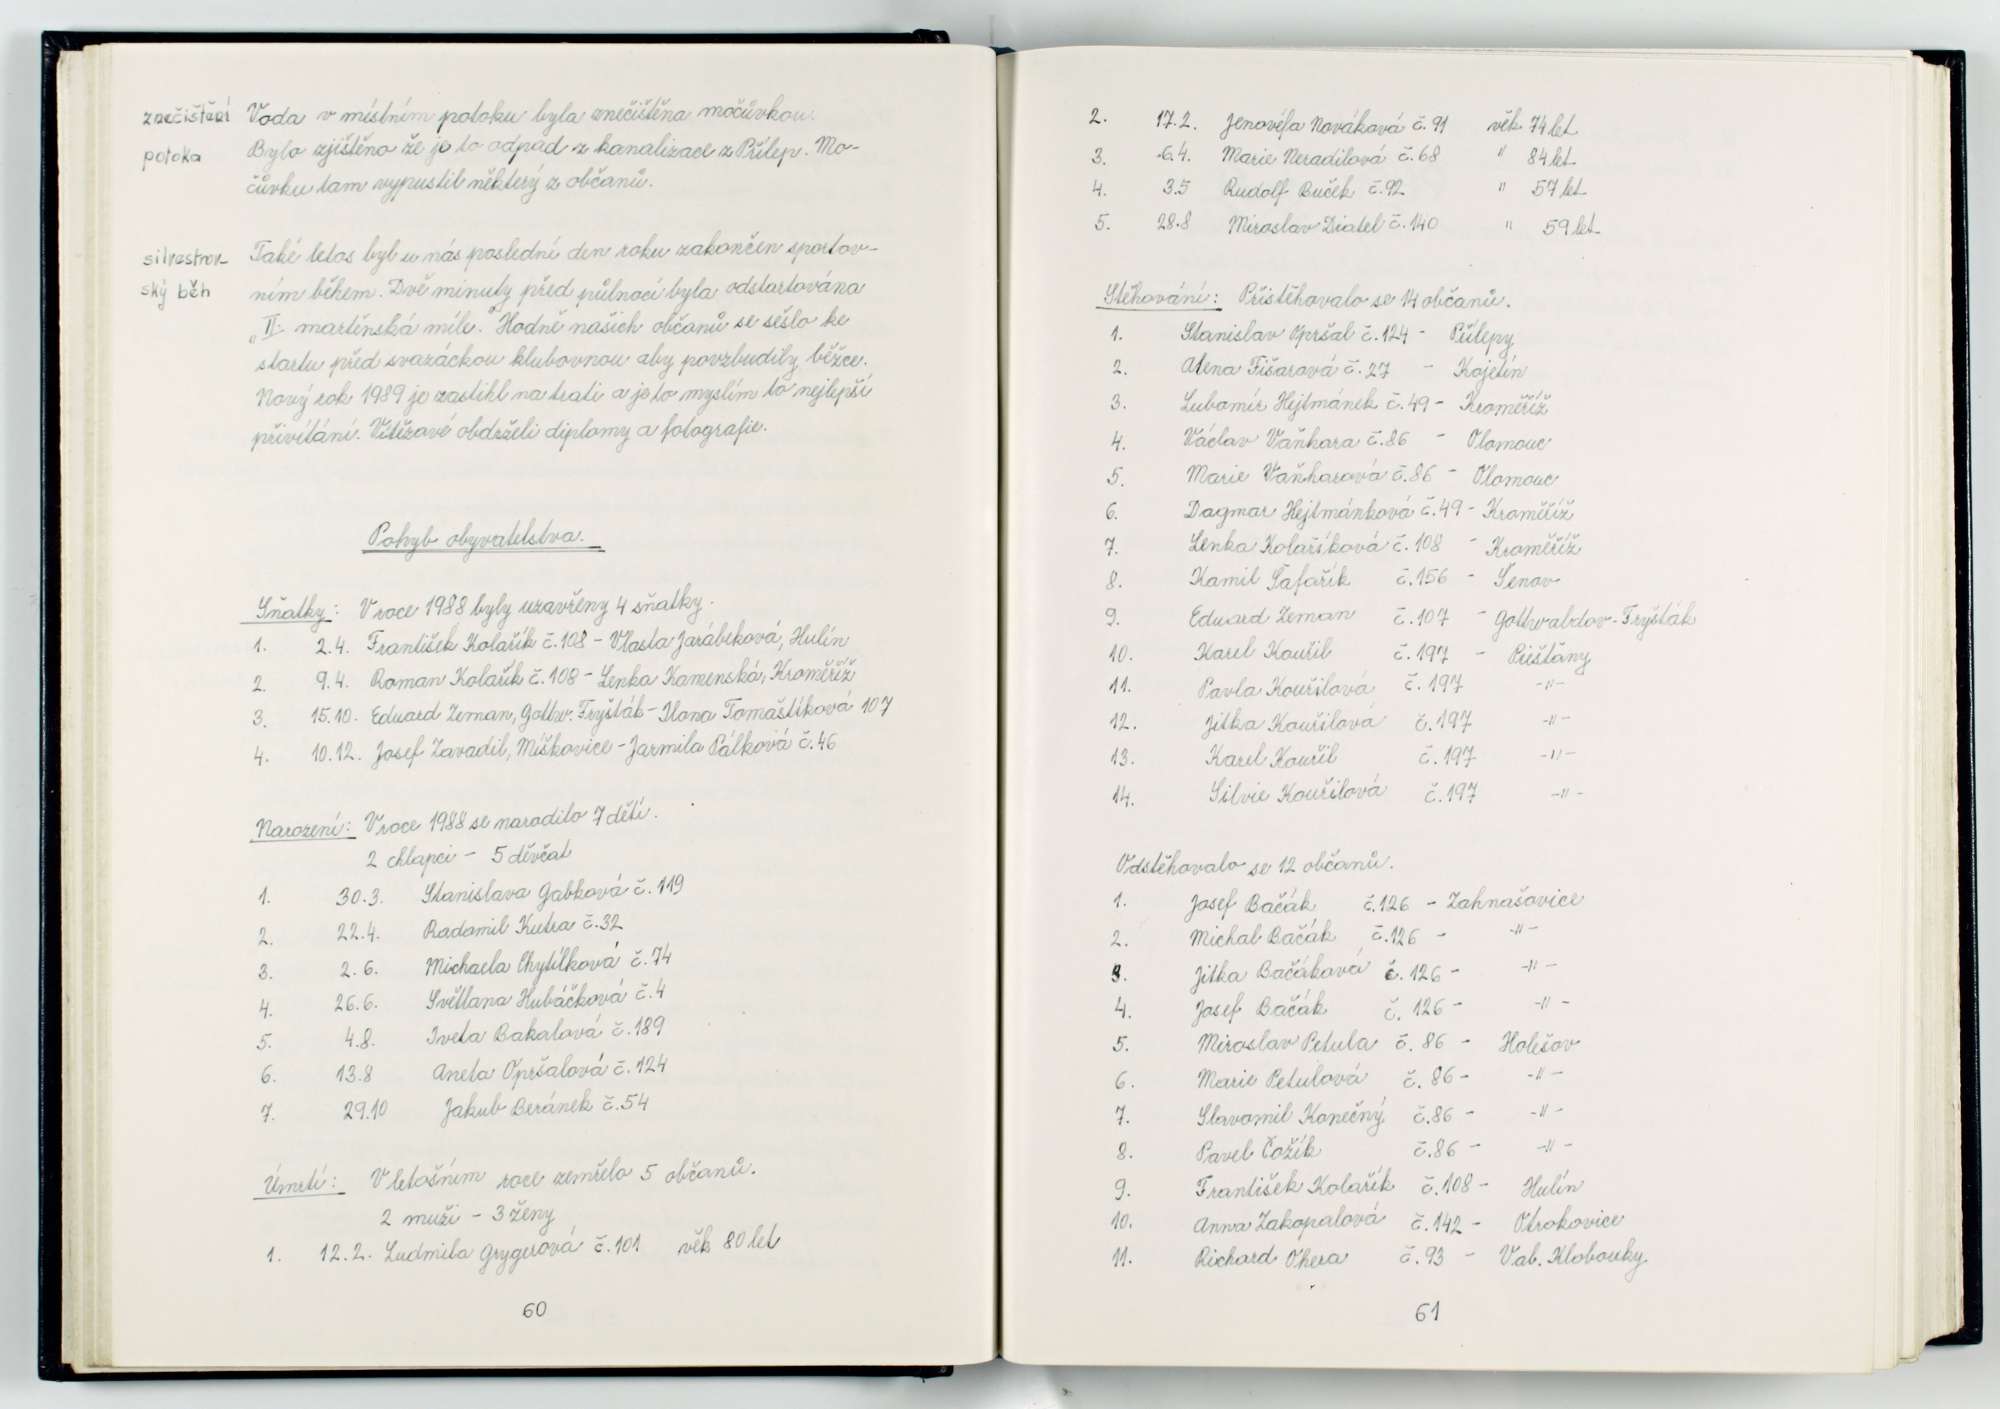 znečištění
potoka
Voda v místním potoku byla znečištěna močůvkou.
Bylo zjištěno že je to odpad z kanalizace z Přílep. Mo-
čůvku tam vypustil některý z občanů.
silvestrov-
ský běh
Také letos byl u nás poslední den roku zakončen sportov-
ním během. Dvě minuty před půlnocí byla odstartována
„II. martinská míle." Hodně našich občanů se sešlo ke
startu před svazáckou klubovnou aby povzbudily běžce.
Nový rok 1989 je zastihl na trati a je to myslím to nejlepší
přivítání. Vítězové obdrželi diplomy a fotografie.
Pohyb obyvatelstva.
Sňatky: V roce 1988 byly uzavřeny 4 sňatky.
1. 2.4. František Kolařík č.108 - Vlasta Jarábková, Hulín
2. 9.4. Roman Kolařík č.108 - Lenka Kamenská, Kroměříž
3. 15.10. Eduard Zeman, Gottw. Fryšták - Ilona Tomaštíková 107
4. 10.12. Josef Zavadil, Míškovice - Jarmila Pálková č.46
Narození: V roce 1988 se narodilo 7 dětí.
2 chlapci - 5 děvčat
1. 30.3. Stanislava Gabková č.119
2. 22.4. Radomil Kutra č.32
3. 2.6. Michaela Chytilková č.74
4. 26.6. Světlana Hubáčková č.4
5. 4.8. Iveta Bakalová č.189
6. 13.8 Aneta Opršalová č.124
7. 29.10 Jakub Beránek č.54
Úmrtí: V letošním roce zemřelo 5 občanů.
2 muži - 3 ženy
1. 12.2. Ludmila Grygerová č.101 věk 80 let
60
2. 17.2. Jenovéfa Nováková č.91 věk 74 let
3. 6.4. Marie Neradilová č.68 " 84 let
4. 3.5 Rudolf Buček č.92 " 57 let
5. 28.8 Miroslav Diatel č.140 " 59 let
Stěhování: Přistěhovalo se 14 občanů.
1. Stanislav Opršal č.124 - Přílepy
2. Alena Fišarová č.27 - Kojetín
3. Lubomír Hejtmánek č.49 - Kroměříž
4. Václav Vaňhara č.86 - Olomouc
5. Marie Vaňharová č.86 - Olomouc
6. Dagmar Hejtmánková č.49 - Kroměříž
7. Lenka Kolaříková č.108 - Kroměříž
8. Kamil Šafařík č.156 - Šenov
9. Eduard Zeman č.107 - Gottwaldov-Fryšták
10. Karel Kouřil č.197 - Piešťany
11. Pavla Kouřilová č.197 -"-
12. Jitka Kouřilová č.197 -"-
13. Karel Kouřil č.197 -"-
14. Silvie Kouřilová č.197 -"-
Odstěhovalo se 12 občanů.
1. Josef Bačák č.126 - Zahnašovice
2. Michal Bačák č.126 - -"-
3. Jitka Bačáková č.126 - -"-
4. Josef Bačák č.126 - -"-
5. Miroslav Petula č.86 - Holešov
6. Marie Petulová č.86 - -"-
7. Slavomil Konečný č.86 - -"-
8. Pavel Čožík č.86 - -"-
9. František Kolařík č.108 - Hulín
10. Anna Zakopalová č.142 - Otrokovice
11. Richard Ohera č.93 - Val. Klobouky
61